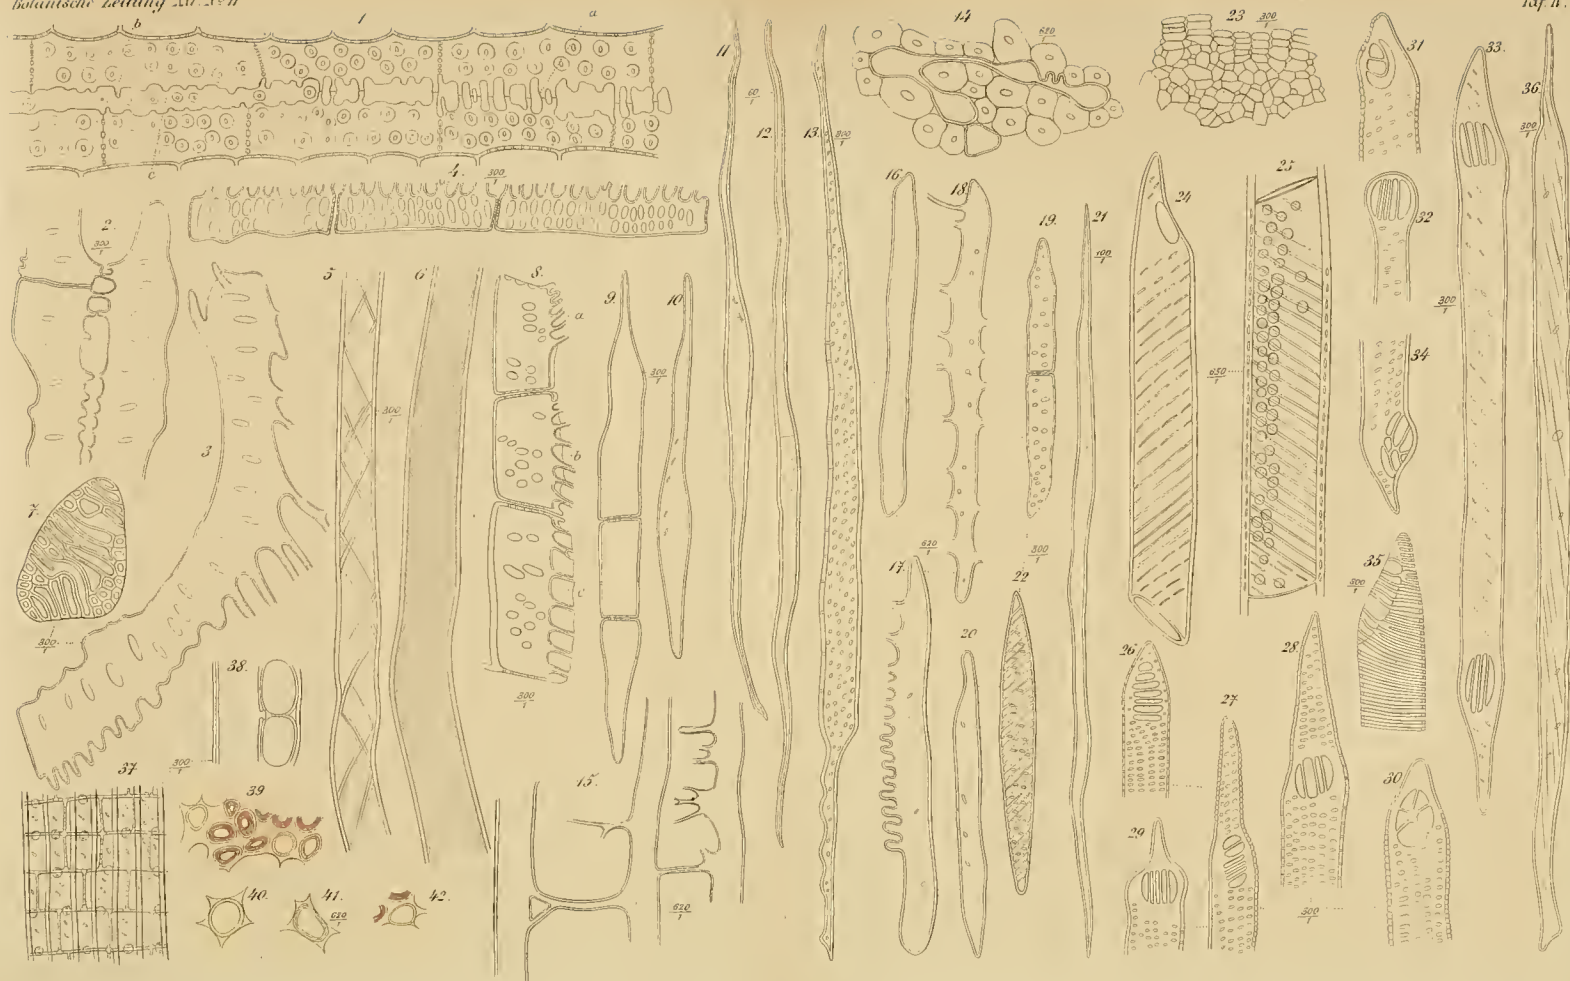 Botanische Zeitung
Taf. II.
b
1
a
c
2.
300/1
3
4.
300/1
5
6
300/1
7.
300/1
8.
a
b
c
300/1
9.
10.
300/1
11
60/1
12.
13.
300/1
14
620/1
15.
620/1
16.
17.
620/1
18.
19.
300/1
20
21
100/1
22
23
300/1
24
25
650/1
26
27
28.
29
300/1
30
31
32
33.
300/1
34
35
300/1
36.
300/1
37
38.
300/1
39
40.
41.
620/1
42.